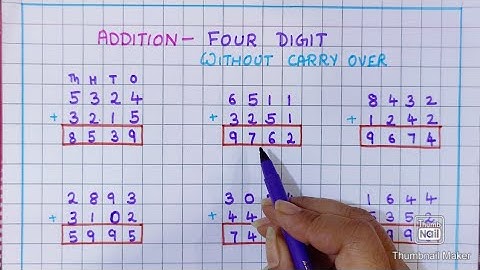 ADDITION - FOUR DIGIT
WITHOUT CARRY OVER
Th H T O
5 3 2 4
+ 3 2 1 5
8 5 3 9
6 5 1 1
+ 3 2 5 1
9 7 6 2
8 4 3 2
+ 1 2 4 2
9 6 7 4
2 8 9 3
+ 3 1 0 2
5 9 9 5
3 0
+ 4 4
7 4
1 6 4 4
3 5 2
9 9
Thumb
Nail
Thumbnail Maker